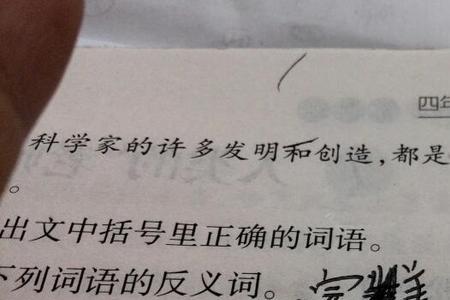 四年
科学家的许多发明和创造,都是
。
出文中括号里正确的词语。
下列词语的反义词。完